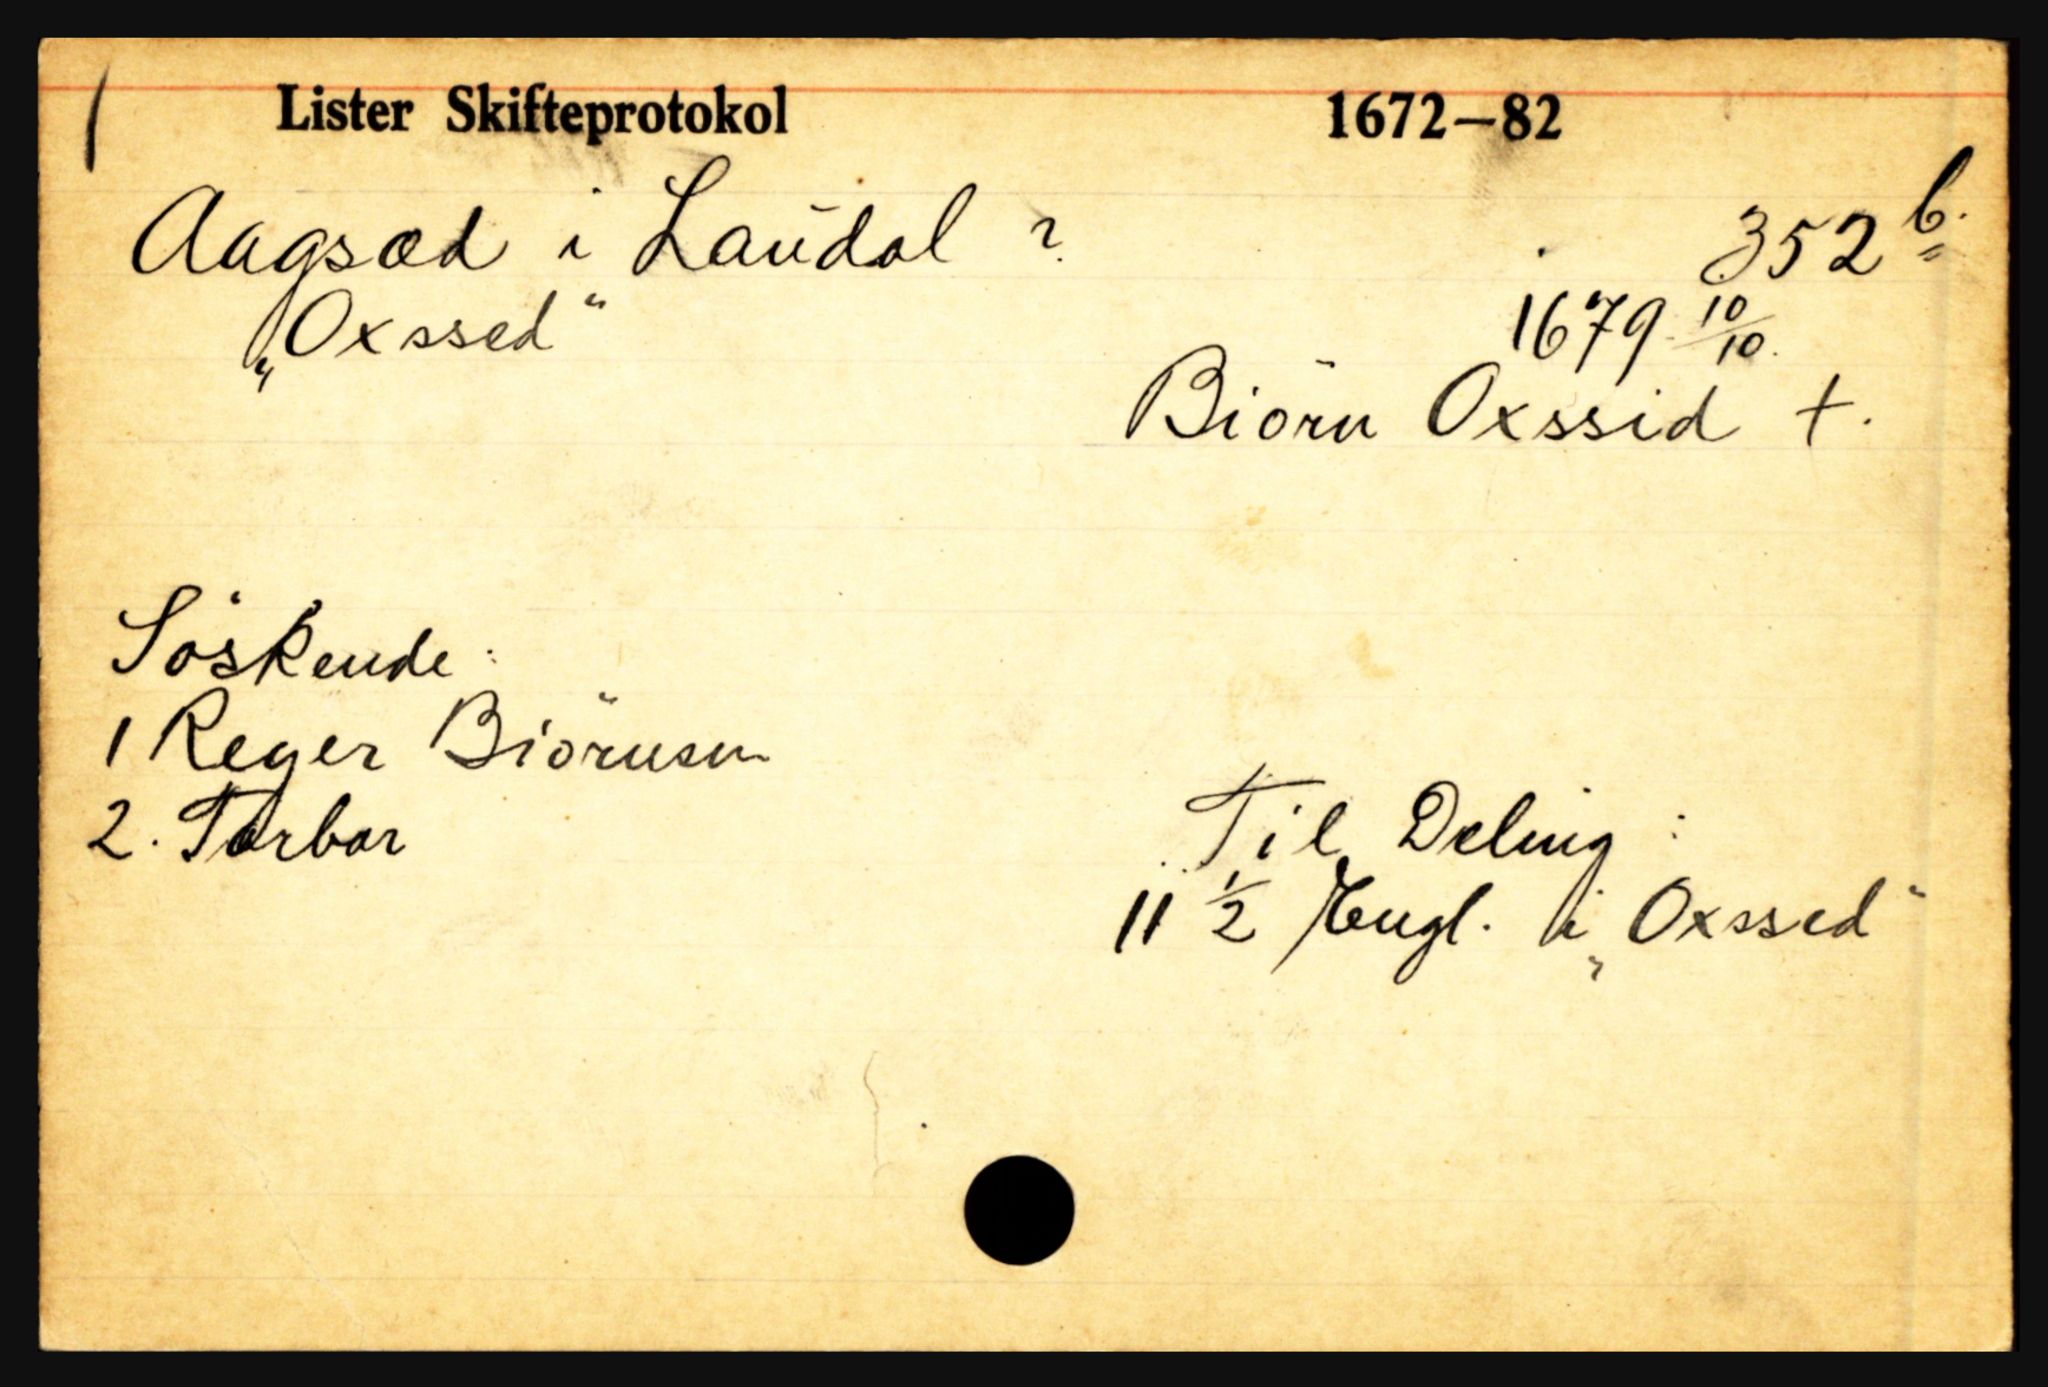 Lister Skifteprotokol 1672–82
Aagsæd i Laudal ? 352 b.
„Oxssed“ 1679 10/10.
Biörn Oxssid +.
Söskende:
1 Reger Biörnsn
2. Torbor
Til Deling:
11 1/2 Engl. i „Oxssed“